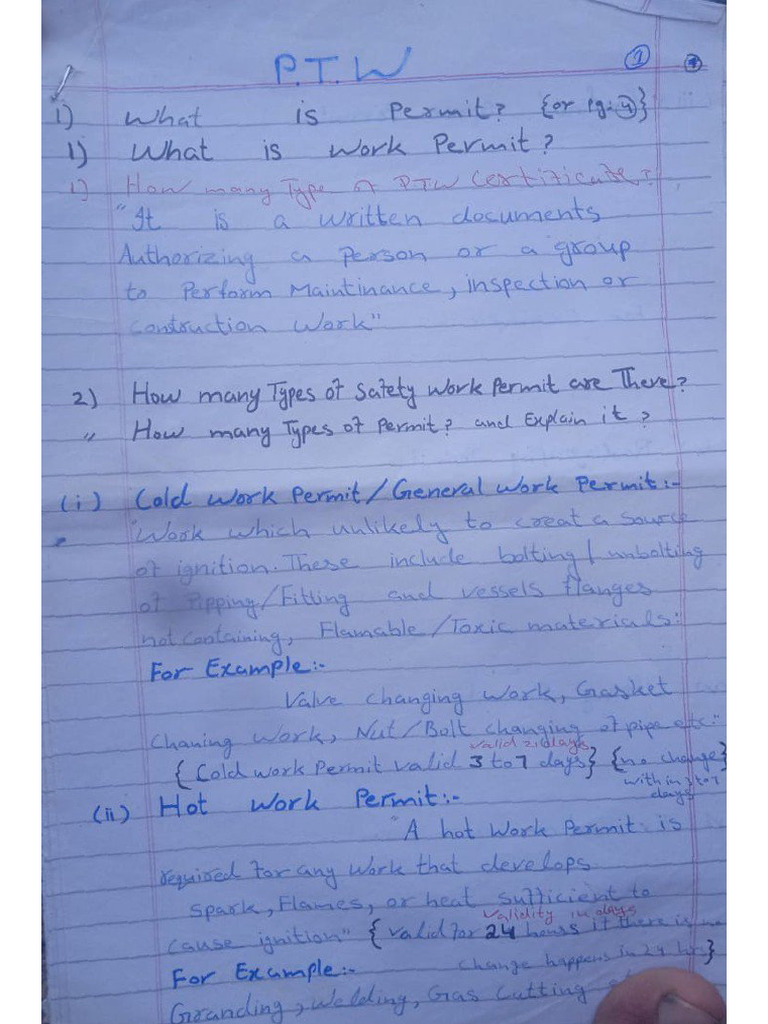 P.T.W
1
1) What is Permit? {or Pg: 4}
1) What is Work Permit?
1) How many Type of PTW Certificate?
"It is a written documents
Authorizing a Person or a group
to Perform Maintinance, inspection or
Contruction Work"
2) How many Types of Safety Work Permit are There?
" How many Types of Permit? and Explain it?
(i) Cold Work Permit/General Work Permit:-
"Work which unlikely to creat a source
of ignition. These include bolting/unbolting
of Pipping/Fitting and vessels flanges
not Containing, Flamable/Toxic materials:
For Example:-
Valve changing work, Gasket
Chaning Work, Nut/Bolt changing of pipe etc:"
valid days
{Cold work Permit valid 3 to 7 days} {no change}
within 3 to 7
days
(ii) Hot Work Permit:-
"A hot Work Permit is
required for any Work that develops
Spark, Flames, or heat sufficient to
validity in days
cause ignition" {valid for 24 hours if there is
change happens in 24 hrs}
For Example:-
Granding, Welding, Gas Cutting